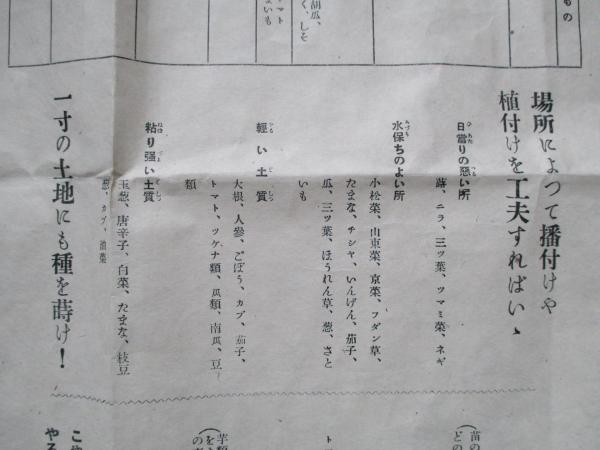 もの
胡瓜、
く、しそ
マト
いも
場所によつて播付けや
植付けを工夫すればいゝ
日當りの惡い所
蕗、ニラ、三ツ葉、ツマミ菜、ネギ
水保ちのよい所
小松菜、山東菜、京菜、フダン草、
たまな、チシャ、いんげん、茄子、
瓜、三ツ葉、ほうれん草、葱、さと
いも
輕い土質
大根、人參、ごぼう、カブ、茄子、
トマト、ツケナ類、瓜類、南瓜、豆
類
粘り强い土質
玉葱、唐辛子、白菜、たまな、枝豆
葱、カブ、漬菜
一寸の土地にも種を蒔け!
苗の
どの
ト
芋類
(を
の
こや
やる